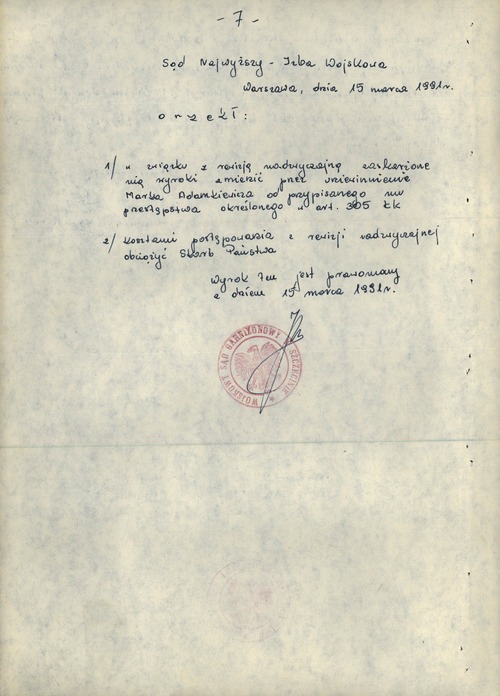 - 7 -
Sąd Najwyższy - Izba Wojskowa
Warszawa, dnia 15 marca 1991r.
o r z e k ł :
1/ w związku z rewizją nadzwyczajną zaskarżone
nią wyroki zmienić przez uniewinnienie
Marka Adamkiewicza od przypisanego mu
przestępstwa określonego w art. 305 kk
2/ kosztami postępowania z rewizji nadzwyczajnej
obciążyć Skarb Państwa
Wyrok ten jest prawomocny
z dniem 15 marca 1991r.
WOJSKOWY SĄD GARNIZONOWY W SZCZECINIE